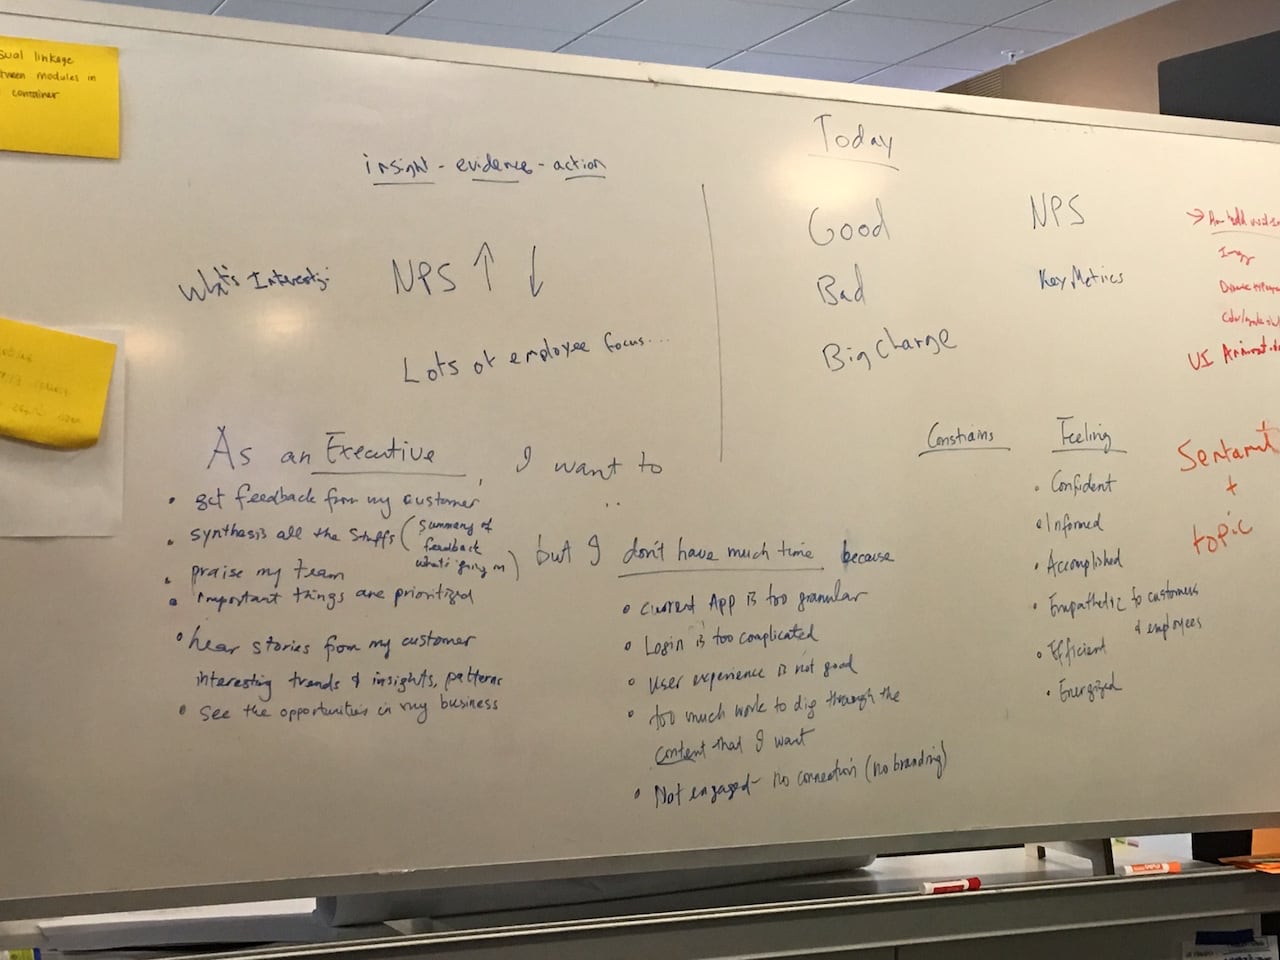 linkage
modules in
container
insight - evidence - action
What's Interestg:
NPS ↑ ↓
Lots of employee focus...
Today
Good
Bad
Big Change
NPS
Key Metrics
UI
Sentamit
+
topic
As an Executive, I want to
..
• get feedback from my customer
• synthesis all the stuffs (summary of
feedback
what's going on)
• praise my team
• important things are prioritized
• hear stories from my customer
interesting trends & insights, patterns
• see the opportunities in my business
but I don't have much time because
• current App is too granular
• Login is too complicated
• user experience is not good
• too much work to dig through the
content that I want
• Not engaged - no connection (no branding)
Constrains
Feeling
• Confident
• Informed
• Accomplished
• Empathetic to customers
& employees
• Efficient
• Energized